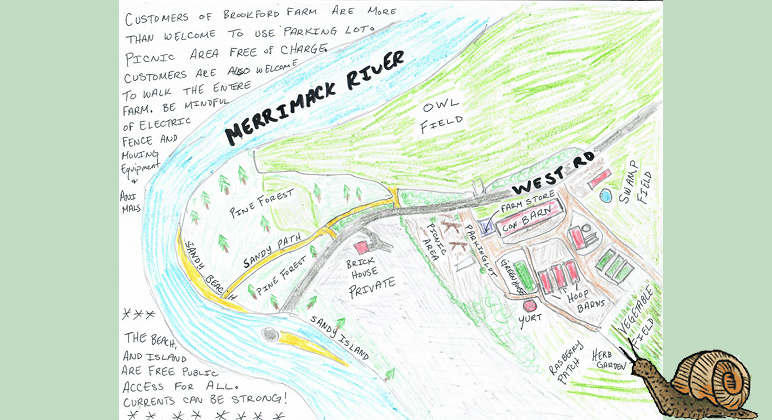 CUSTOMERS OF BROOKFORD FARM ARE MORE
THAN WELCOME TO USE PARKING LOT.
PICNIC AREA FREE OF CHARGE.
CUSTOMERS ARE ALSO WELCOME
TO WALK THE ENTIRE
FARM. BE MINDFUL
OF ELECTRIC
FENCE AND
MOVING
Equipment
+
ANI
MALS
MERRIMACK RIVER
OWL
FIELD
WEST RD
SWAMP
FIELD
FARM STORE
COW BARN
PINE FOREST
SANDY PATH
PINE FOREST
SANDY BEACH
BRICK
HOUSE
PRIVATE
PICNIC
AREA
PARKING LOT
GREENHOUSE
HOOP
BARNS
YURT
VEGETABLE
FIELD
RASBERRY
PATCH
HERB
GARDEN
SANDY ISLAND
***
THE BEACH,
AND ISLAND
ARE FREE PUBLIC
ACCESS FOR ALL.
CURRENTS CAN BE STRONG!
** * * * * *